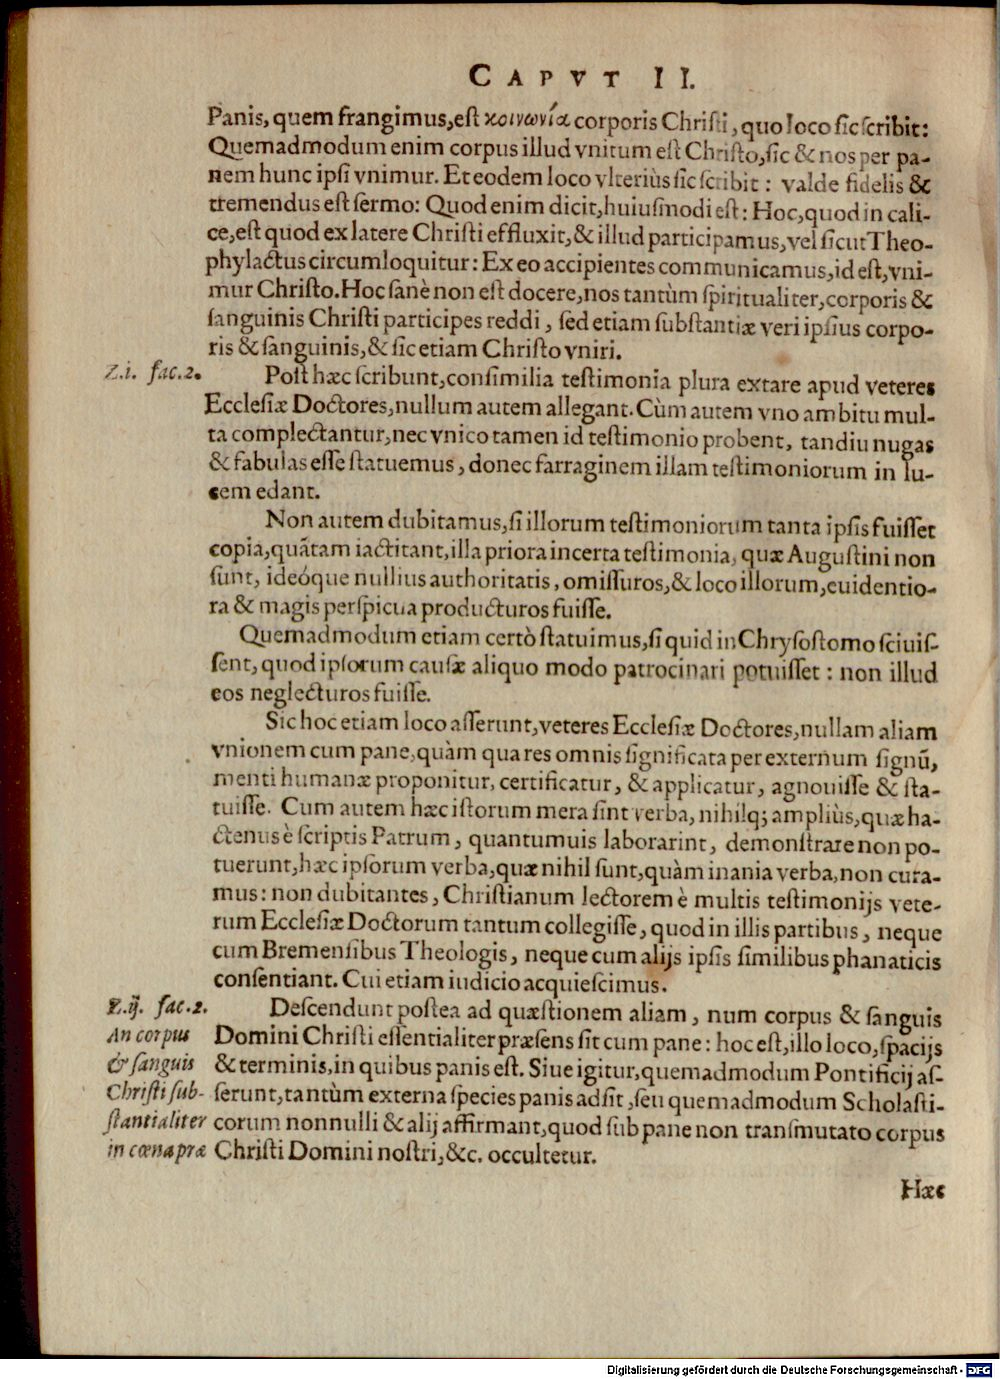 CAPVT II.
Panis, quem frangimus, eſt κοινωνία corporis Chriſti, quo loco ſic ſcribit:
Quemadmodum enim corpus illud vnitum eſt Chriſto, ſic & nos per pa-
nem hunc ipſi vnimur. Et eodem loco vlteriùs ſic ſcribit: valde fidelis &
tremendus eſt ſermo: Quod enim dicit, huiuſmodi eſt: Hoc, quod in cali-
ce, eſt quod ex latere Chriſti effluxit, & illud participamus, vel ſicut Theo-
phylactus circumloquitur: Ex eo accipientes communicamus, id eſt, vni-
mur Chriſto. Hoc ſanè non eſt docere, nos tantùm ſpiritualiter, corporis &
ſanguinis Chriſti participes reddi, ſed etiam ſubſtantiæ veri ipſius corpo-
ris & ſanguinis, & ſic etiam Chriſto vniri.
Z.i. fac.2.
Poſt hæc ſcribunt, conſimilia teſtimonia plura extare apud veteres
Eccleſiæ Doctores, nullum autem allegant. Cùm autem vno ambitu mul-
ta complectantur, nec vnico tamen id teſtimonio probent, tandiu nugas
& fabulas eſſe ſtatuemus, donec farraginem illam teſtimoniorum in lu-
cem edant.
Non autem dubitamus, ſi illorum teſtimoniorum tanta ipſis fuiſſet
copia, quãtam iactitant, illa priora incerta teſtimonia, quæ Auguſtini non
ſunt, ideóque nullius authoritatis, omiſſuros, & loco illorum, euidentio-
ra & magis perſpicua producturos fuiſſe.
Quemadmodum etiam certò ſtatuimus, ſi quid in Chryſoſtomo ſciuiſ-
ſent, quod ipſorum cauſæ aliquo modo patrocinari potuiſſet: non illud
eos neglecturos fuiſſe.
Sic hoc etiam loco aſſerunt, veteres Eccleſiæ Doctores, nullam aliam
vnionem cum pane, quàm qua res omnis ſignificata per externum ſignũ,
menti humanæ proponitur, certificatur, & applicatur, agnouiſſe & ſta-
tuiſſe. Cum autem hæc iſtorum mera ſint verba, nihilq; ampliùs, quæ ha-
ctenus è ſcriptis Patrum, quantumuis laborarint, demonſtrare non po-
tuerunt, hæc ipſorum verba, quæ nihil ſunt, quàm inania verba, non cura-
mus: non dubitantes, Chriſtianum lectorem è multis teſtimonijs vete-
rum Eccleſiæ Doctorum tantum collegiſſe, quod in illis partibus, neque
cum Bremenſibus Theologis, neque cum alijs ipſis ſimilibus phanaticis
conſentiant. Cui etiam iudicio acquieſcimus.
Z.ij. fac.2.
An corpus
& ſanguis
Chriſti ſub-
ſtantialiter
in cœna præ
Deſcendunt poſtea ad quæſtionem aliam, num corpus & ſanguis
Domini Chriſti eſſentialiter præſens ſit cum pane: hoc eſt, illo loco, ſpacijs
& terminis, in quibus panis eſt. Siue igitur, quemadmodum Pontificij aſ-
ſerunt, tantùm externa ſpecies panis adſit, ſeu quemadmodum Scholaſti-
corum nonnulli & alij affirmant, quod ſub pane non tranſmutato corpus
Chriſti Domini noſtri, &c. occultetur.
Hæc
Digitalisierung gefördert durch die Deutsche Forschungsgemeinschaft - DFG